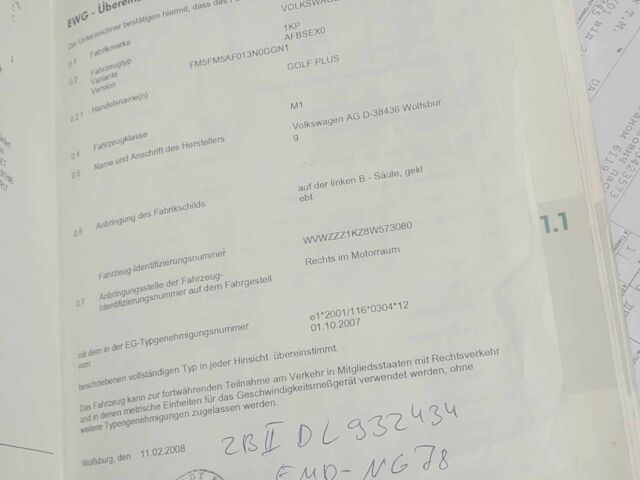 EWG - Übereins
Die Unterzeichner bestätigen hiermit, dass das
0.1 Fabrikmarke VOLKSWAGE
0.2 Fahrzeugtyp 1KP
Variante AFBSEX0
Version FM5FM5AF013N0GGN1
0.2.1 Handelsname(n) GOLF PLUS
0.4 Fahrzeugklasse M1
0.5 Name und Anschrift des Herstellers Volkswagen AG D-38436 Wolfsbur
g
0.6 Anbringung des Fabrikschilds auf der linken B - Säule, gekl
ebt
Fahrzeug-Identifizierungsnummer WVWZZZ1KZ8W573080
0.7 Anbringungsstelle der Fahrzeug- Rechts im Motorraum
Identifizierungsnummer auf dem Fahrgestell
mit dem in der EG-Typgenehmigungsnummer e1*2001/116*0304*12
vom 01.10.2007
beschriebenen vollständigen Typ in jeder Hinsicht übereinstimmt.
Das Fahrzeug kann zur fortwährenden Teilnahme am Verkehr in Mitgliedsstaaten mit Rechtsverkehr
und in denen metrische Einheiten für das Geschwindigkeitsmeßgerät verwendet werden, ohne
weitere Typengenehmigungen zugelassen werden.
Wolfsburg, den 11.02.2008
ZBII DL932434
EMD-NG78
1.1